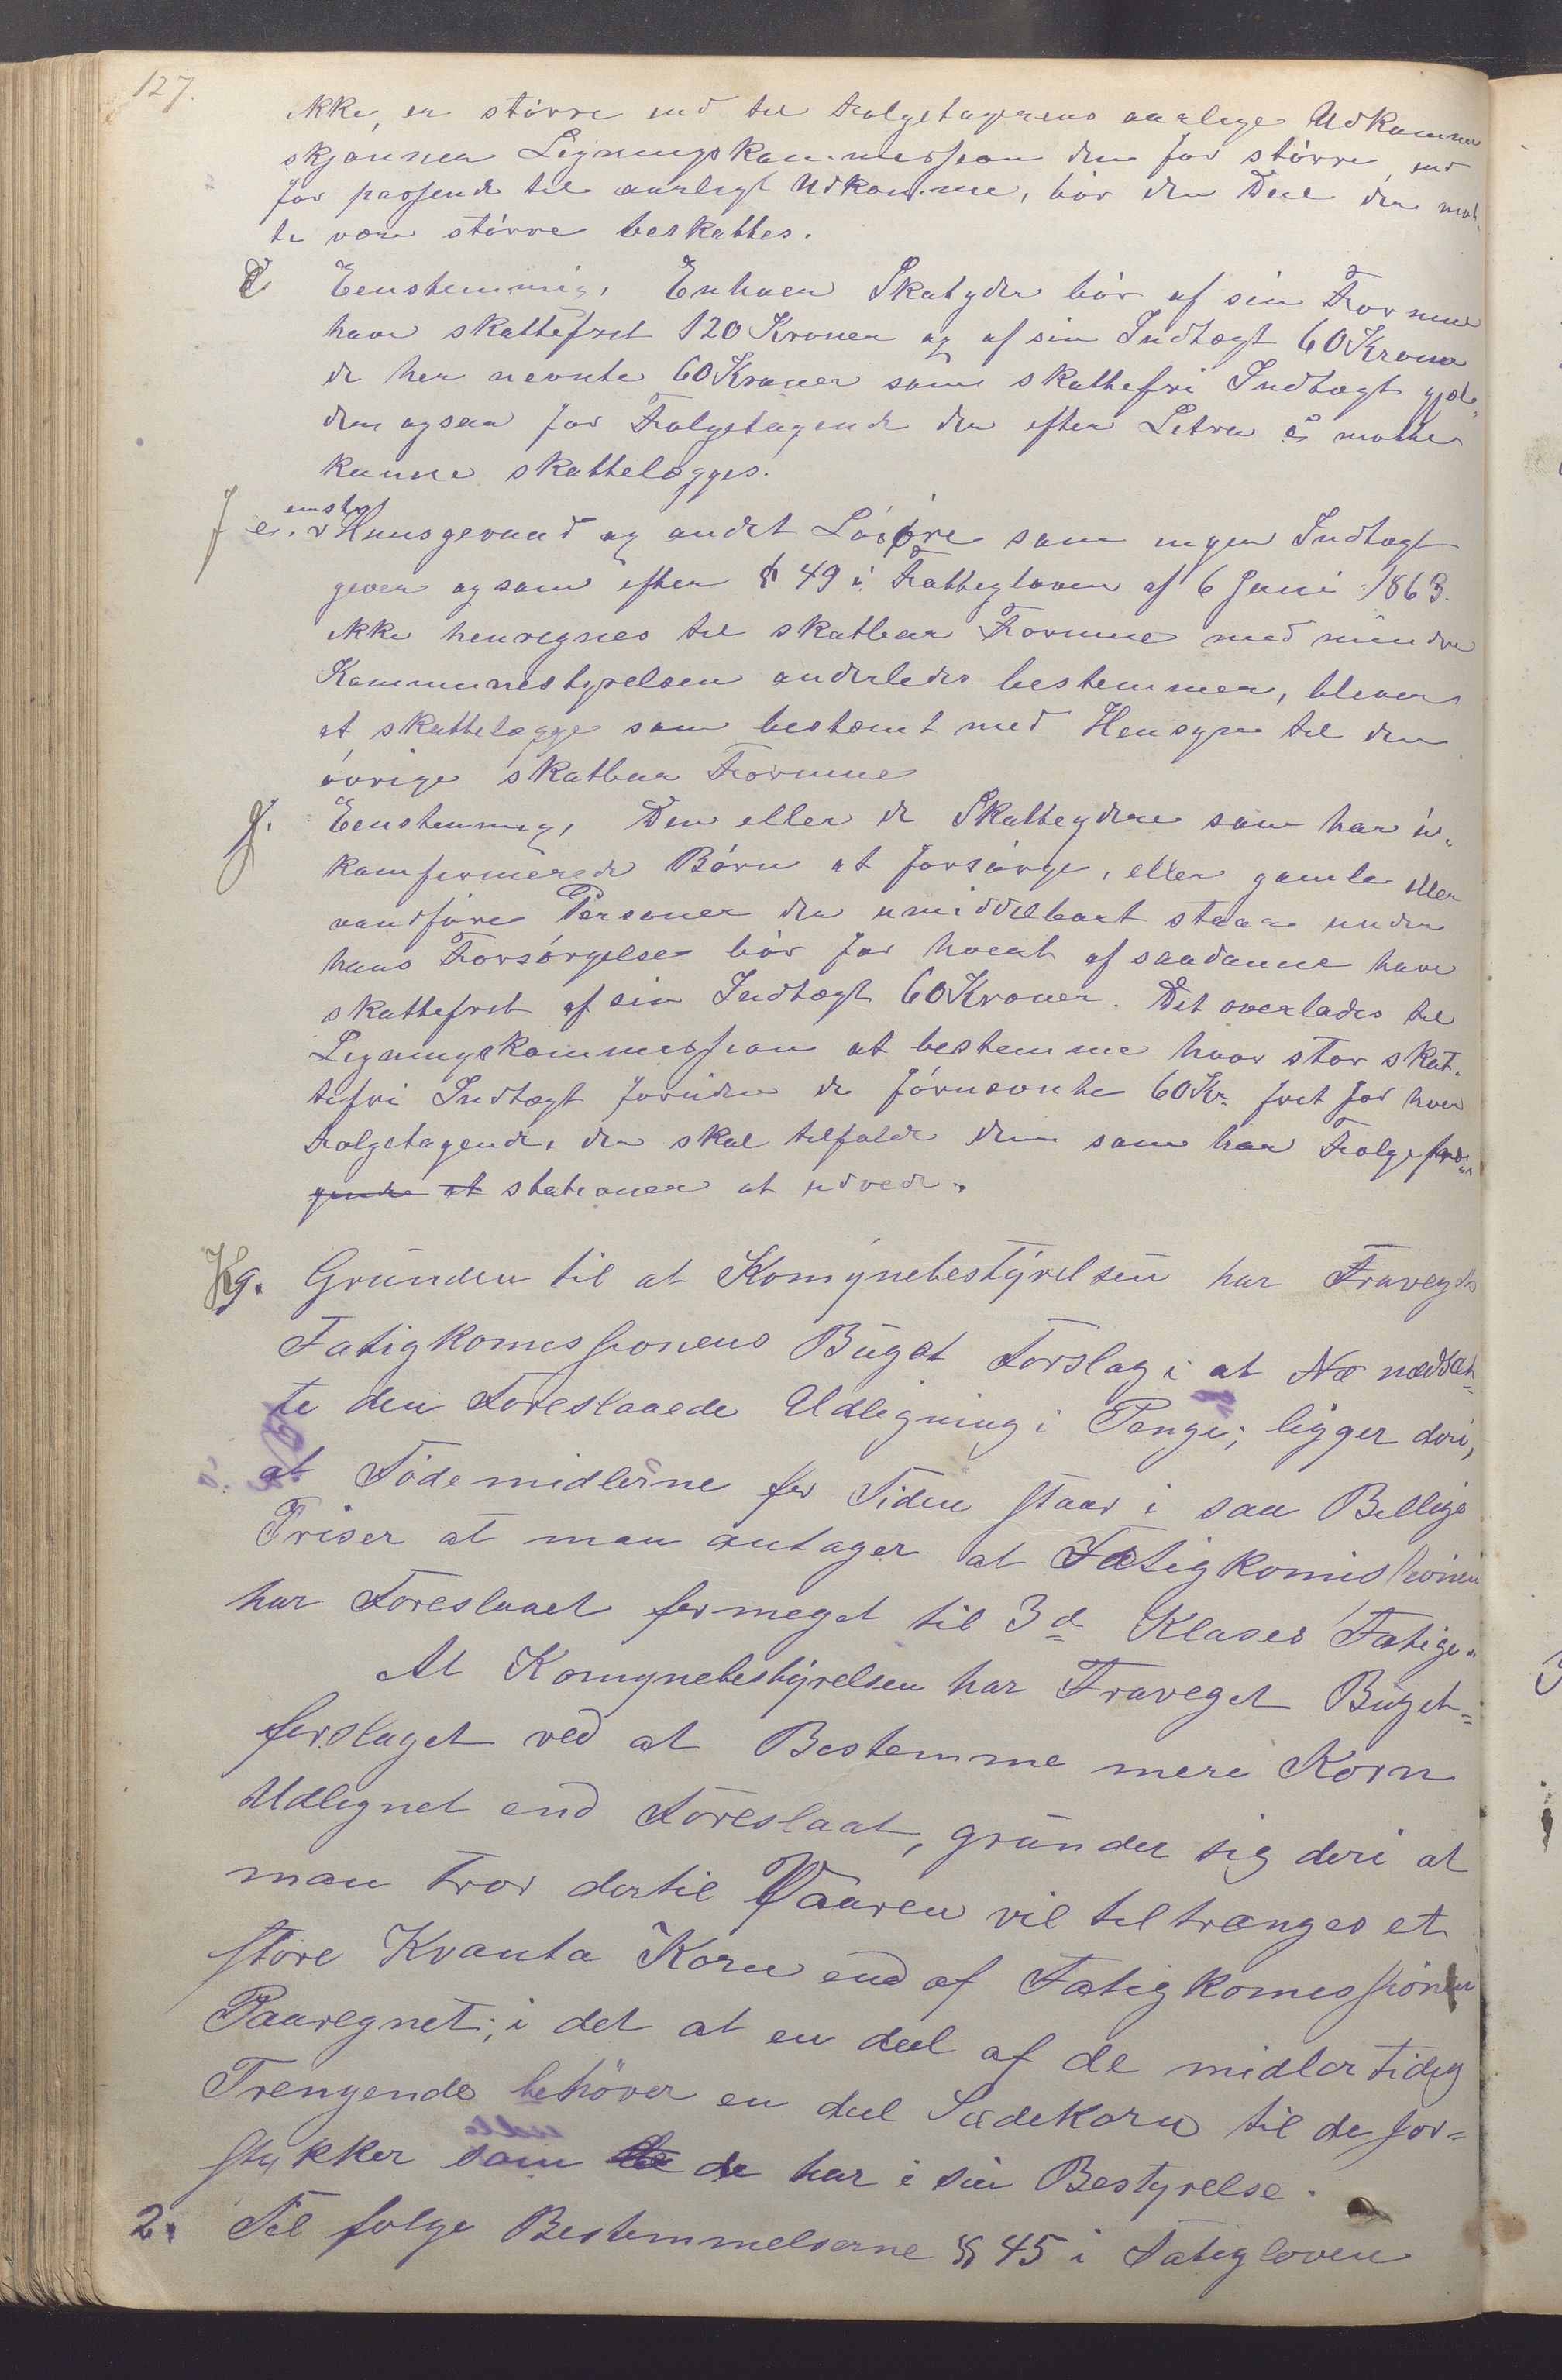 127.
ikke, er större end til Folgetagerens aarlige Udkomme
skjønner Ligningskommissjon den for större, end
for passende til aarligt Udkomme, bör den Deel den mot-
te være större beskattes.
E Eenstemmig, Enhver Skatyder bör af sin Formue
have skattefrit 120 Kroner og af sin Indtægt 60 Kroner
de her nevnte 60 Kroner som skattefri Indtægt gjæl-
der ogsaa for Folgetagende der efter Litra c motte
kunne skattelægges.
f eenst Huusgeraad og andet Lösöre som ingen Indtægt
giver og som efter § 49 i Fattigloven af 6 Juni 1863.
ikke henregnes til skatbar Formue med mindre
Kommunestyrelsen anderledes bestemmer, bliver
at skattelægge som bestemt med Hensyn til den
övrige skatbar Formue
g. Eenstemmig, Den eller de Skatteydere som har u-
komfirmerede Börn at forsörge, eller gamle eller
vanföre Personer der umiddelbart staar under
hans Forsörgelse bör for hvert af saadanne have
skattefrit af sin Indtægt 60 Kroner. Det overlades til
Ligningskommissjon at bestemme hvor stor skat-
tefri Indtægt foruden de förnevnte 60 Kr. frit for hver
Folgetagende, der skal tilfalde dem som har Folge
gende at stationer at udrede.
g. Grunden til at Komynebestyrelsen har Fraveget
Fatigkomissionens Büget Forslag i at nædsæt-
te den Foreslaaede Udligning i Penge; ligger deri,
at Födemidlerne for Tiden staar i saa Bellige
Priser at man antager at Fatigkomissionen
har Foreslaaet for meget til 3d Klases Fatige.
At Komynebestyrelsen har Fraveget Büget-
forslaget ved at Bestemme mere Korn
Udlignet end Foreslaat, grunder sig deri at
man tror dertil Vaaren vil tiltrænges et
störe Kvanta Korn end af Fatigkomissionen
Paaregnet; i det at en deel af de midlertidig
Trengende behöver en deel Sædekorn til de jor-
stykker som de har i sin Bestyrelse.
2. Til folge Bestemmelserne § 45 i Fatigloven